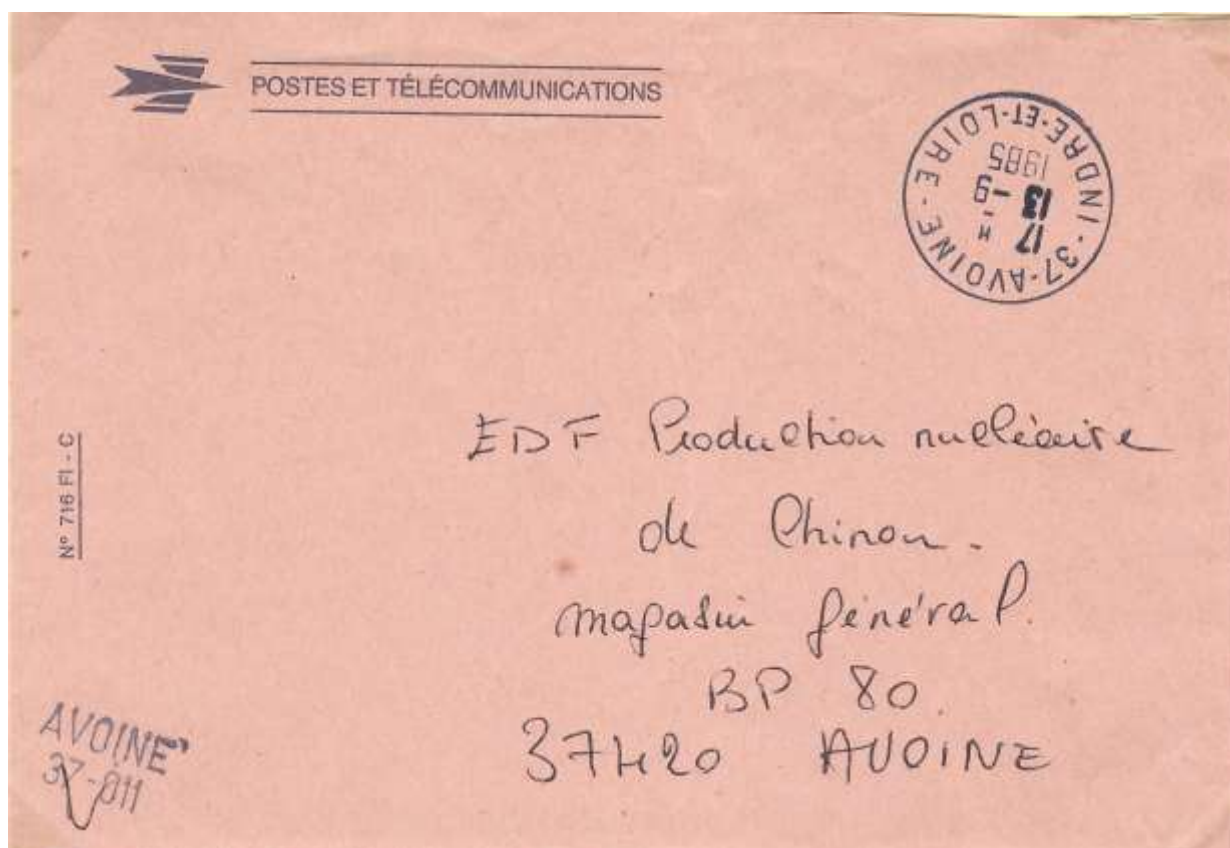 POSTES ET TÉLÉCOMMUNICATIONS
37-AVOINE-INDRE-ET-LOIRE-
17 H
13 -9
1985
N° 716 FI - C
EDF Production nucléaire
de Chinon.
magasin général.
BP 80.
37420 AVOINE
AVOINE
37-011